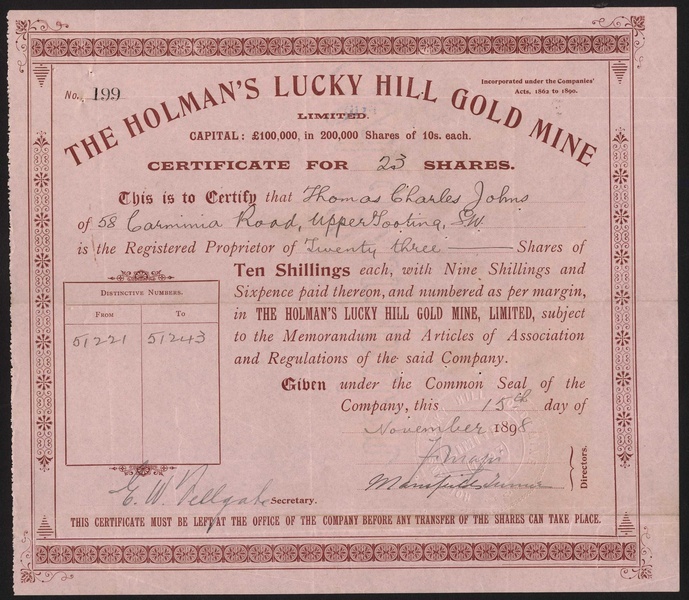 No. 199
Incorporated under the Companies'
Acts, 1862 to 1890.
THE HOLMAN'S LUCKY HILL GOLD MINE
LIMITED.
CAPITAL: £100,000, in 200,000 Shares of 10s. each.
CERTIFICATE FOR 23 SHARES.
This is to Certify that Thomas Charles Johns
of 58 Road, Upper Tooting, SW
is the Registered Proprietor of Twenty three Shares of
Ten Shillings each, with Nine Shillings and
Sixpence paid thereon, and numbered as per margin,
in THE HOLMAN'S LUCKY HILL GOLD MINE, LIMITED, subject
to the Memorandum and Articles of Association
and Regulations of the said Company.
DISTINCTIVE NUMBERS.
FROM TO
51221 51243
Given under the Common Seal of the
Company, this 15th day of
November 1898
Directors.
E. W. Secretary.
THIS CERTIFICATE MUST BE LEFT AT THE OFFICE OF THE COMPANY BEFORE ANY TRANSFER OF THE SHARES CAN TAKE PLACE.